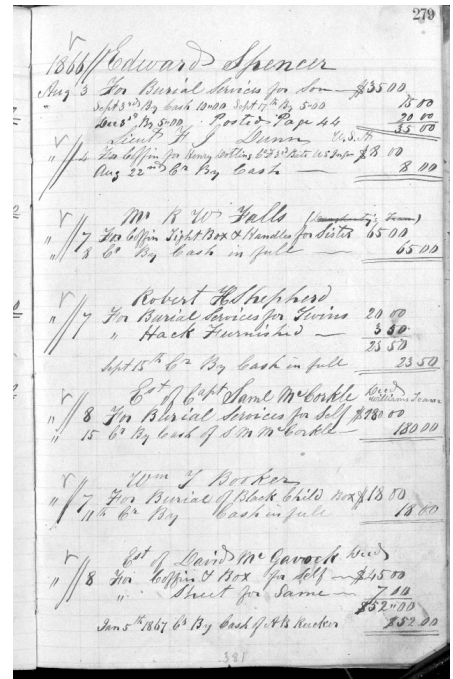 279
1866 // Edward Spencer
Aug 3 For Burial Services for Son — $35 00
" Sept 3rd By Cash 10=00 Sept 17th By 5=00 15 00
Dec 31st By 5=00 Posted Page 44 20 00
35 00
Lieut H J Dunn U.S.A
" // 4 For Coffin for Henry Co F 3rd Batt US $8 00
Aug 22nd Cr By Cash — 8 00
Mr R W Falls
" // 7 For Coffin Tight Box & Handles for Sister 65 00
" 8 Cr By Cash in full — 65 00
Robert H Shepherd
" // 7 For Burial Services for Twins 20 00
" Hack Furnished — 3 50
23 50
Sept 15th Cr By Cash in full 23 50
Est of Capt Saml McCorkle Decd
" // 8 For Burial Services for Self $180 00
" 15 Cr By Cash of S M McCorkle 180 00
Wm T Booker
" // 7 For Burial of Black Child Box $18 00
" 11th Cr By Cash in full 18 00
Est of David McGavock Decd
" // 8 For Coffin & Box for Self — $45 00
" Sheet for Same — 7 00
$52 00
Jan 5th 1867 Cr By Cash of A B Rucker $52 00
381